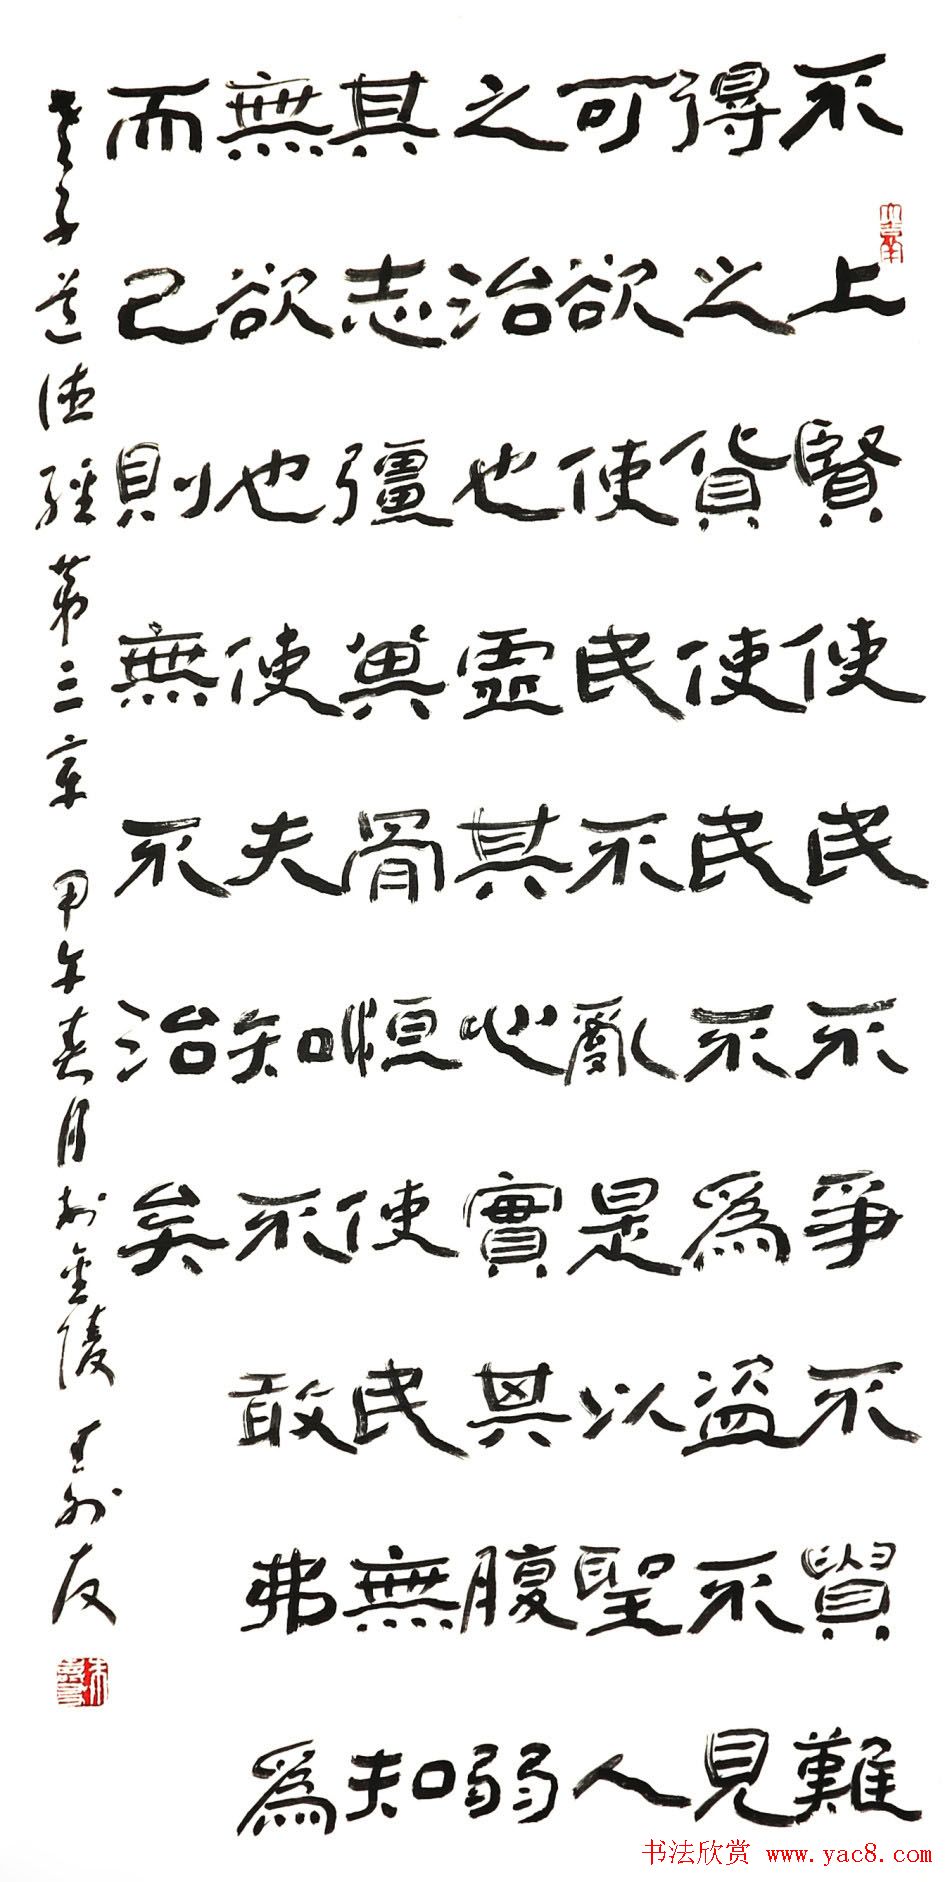 不上賢使民不爭不貴難
得之貨使民不爲盜不見
可欲使民不亂是以聖人
之治也虛其心實其腹弱
其志彊其骨恒使民無知
無欲也使夫知不敢弗爲
而已則無不治矣
老子道德經第三章 甲午春月於金陵 朱寿友
书法欣赏 www.yac8.com